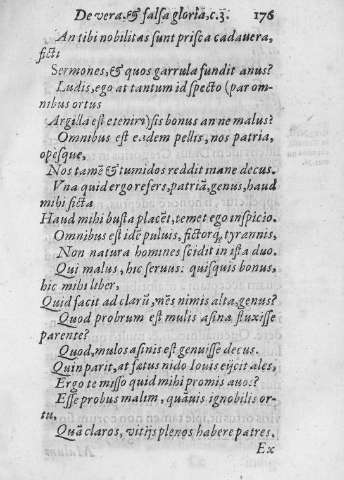 De vera, & falsa gloria, c. 3. 176
An tibi nobilitas sunt prisca cadauera,
ficti
Sermones, & quos garrula fundit anus?
Ludis, ego at tantum id specto (par om-
nibus ortus
Argilla est etenim) sis bonus an ne malus?
Omnibus est eadem pellis, nos patria,
opésque,
Nos tamē & tumidos reddit inane decus.
Vna quid ergo refers, patriā, genus, haud
mihi ficta
Haud mihi busta placēt, temet ego inspicio.
Omnibus est idē puluis, fictorq́; tyrannis,
Non natura homines scidit in ista duo.
Qui malus, hic seruus: quisquis bonus,
hic mihi liber,
Quid facit ad clarū, mēs nimis alta, genus?
Quod probrum est mulis asina fluxisse
parente?
Quod, mulos asinis est genuisse decus.
Quin parit, at fœtus nido Iouis eijcit ales,
Ergo te misso quid mihi promis auos?
Esse probus malim, quāuis ignobilis or-
tu,
Quā claros, vitijs plenos habere patres.
Ex